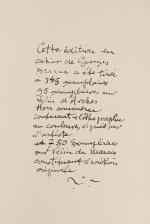 Cette édition du
cahier de Georges
Braque a été tirée
à 845 exemplaires
95 exemplaires sur
Vélin d'Arches
Hors commerce
contenant 1 lithographie
en couleurs, signée par
l'artiste
et 750 exemplaires
sur Vélin du Marais
constituant l'édition
originale